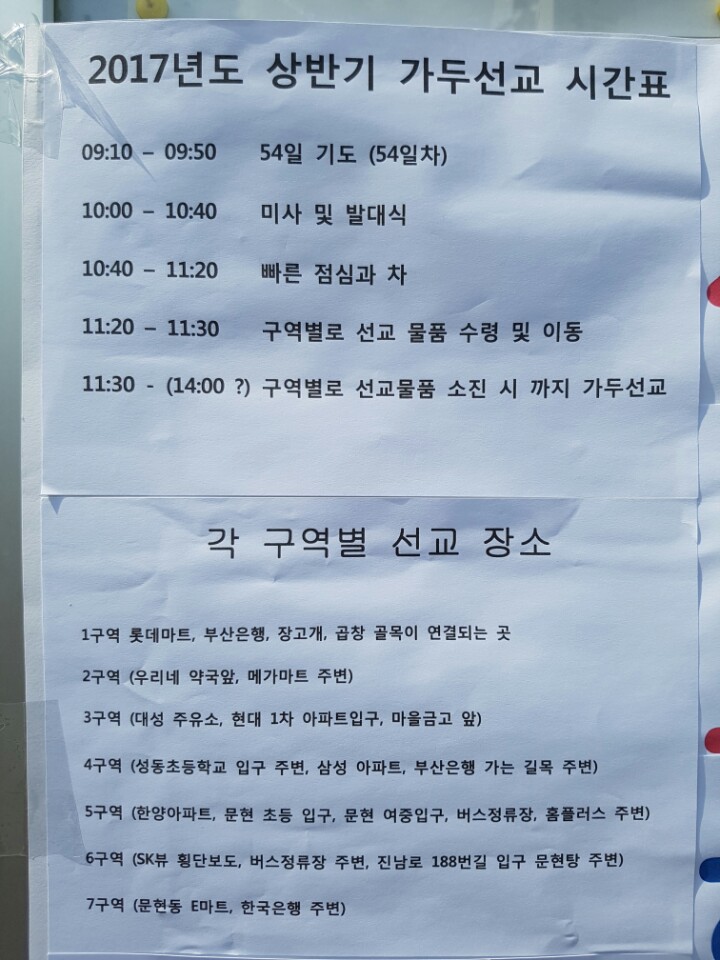 2017년도 상반기 가두선교 시간표
09:10 – 09:50 54일 기도 (54일차)
10:00 – 10:40 미사 및 발대식
10:40 – 11:20 빠른 점심과 차
11:20 – 11:30 구역별로 선교 물품 수령 및 이동
11:30 - (14:00 ?) 구역별로 선교물품 소진 시 까지 가두선교
각 구역별 선교 장소
1구역 롯데마트, 부산은행, 장고개, 곱창 골목이 연결되는 곳
2구역 (우리네 약국앞, 메가마트 주변)
3구역 (대성 주유소, 현대 1차 아파트입구, 마을금고 앞)
4구역 (성동초등학교 입구 주변, 삼성 아파트, 부산은행 가는 길목 주변)
5구역 (한양아파트, 문현 초등 입구, 문현 여중입구, 버스정류장, 홈플러스 주변)
6구역 (SK뷰 횡단보도, 버스정류장 주변, 진남로 188번길 입구 문현탕 주변)
7구역 (문현동 E마트, 한국은행 주변)